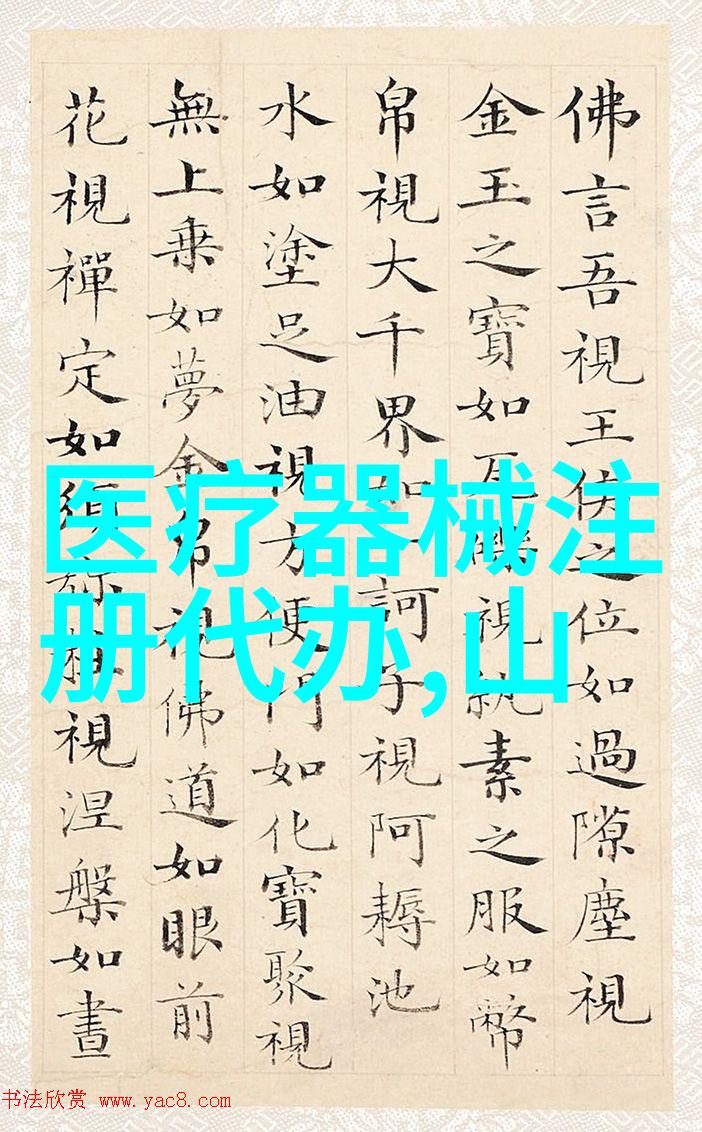 佛言吾視王侯之位如過隙塵視
金玉之寶如瓦礫視紈素之服如幣
帛視大千界如一訶子視阿耨池
水如塗足油視方便門如化寶聚視
無上乗如夢金帛視佛道如眼前
花視禪定如須弥柱視涅槃如晝
医疗器械注
册代办,山
书法欣赏 www.yac8.com